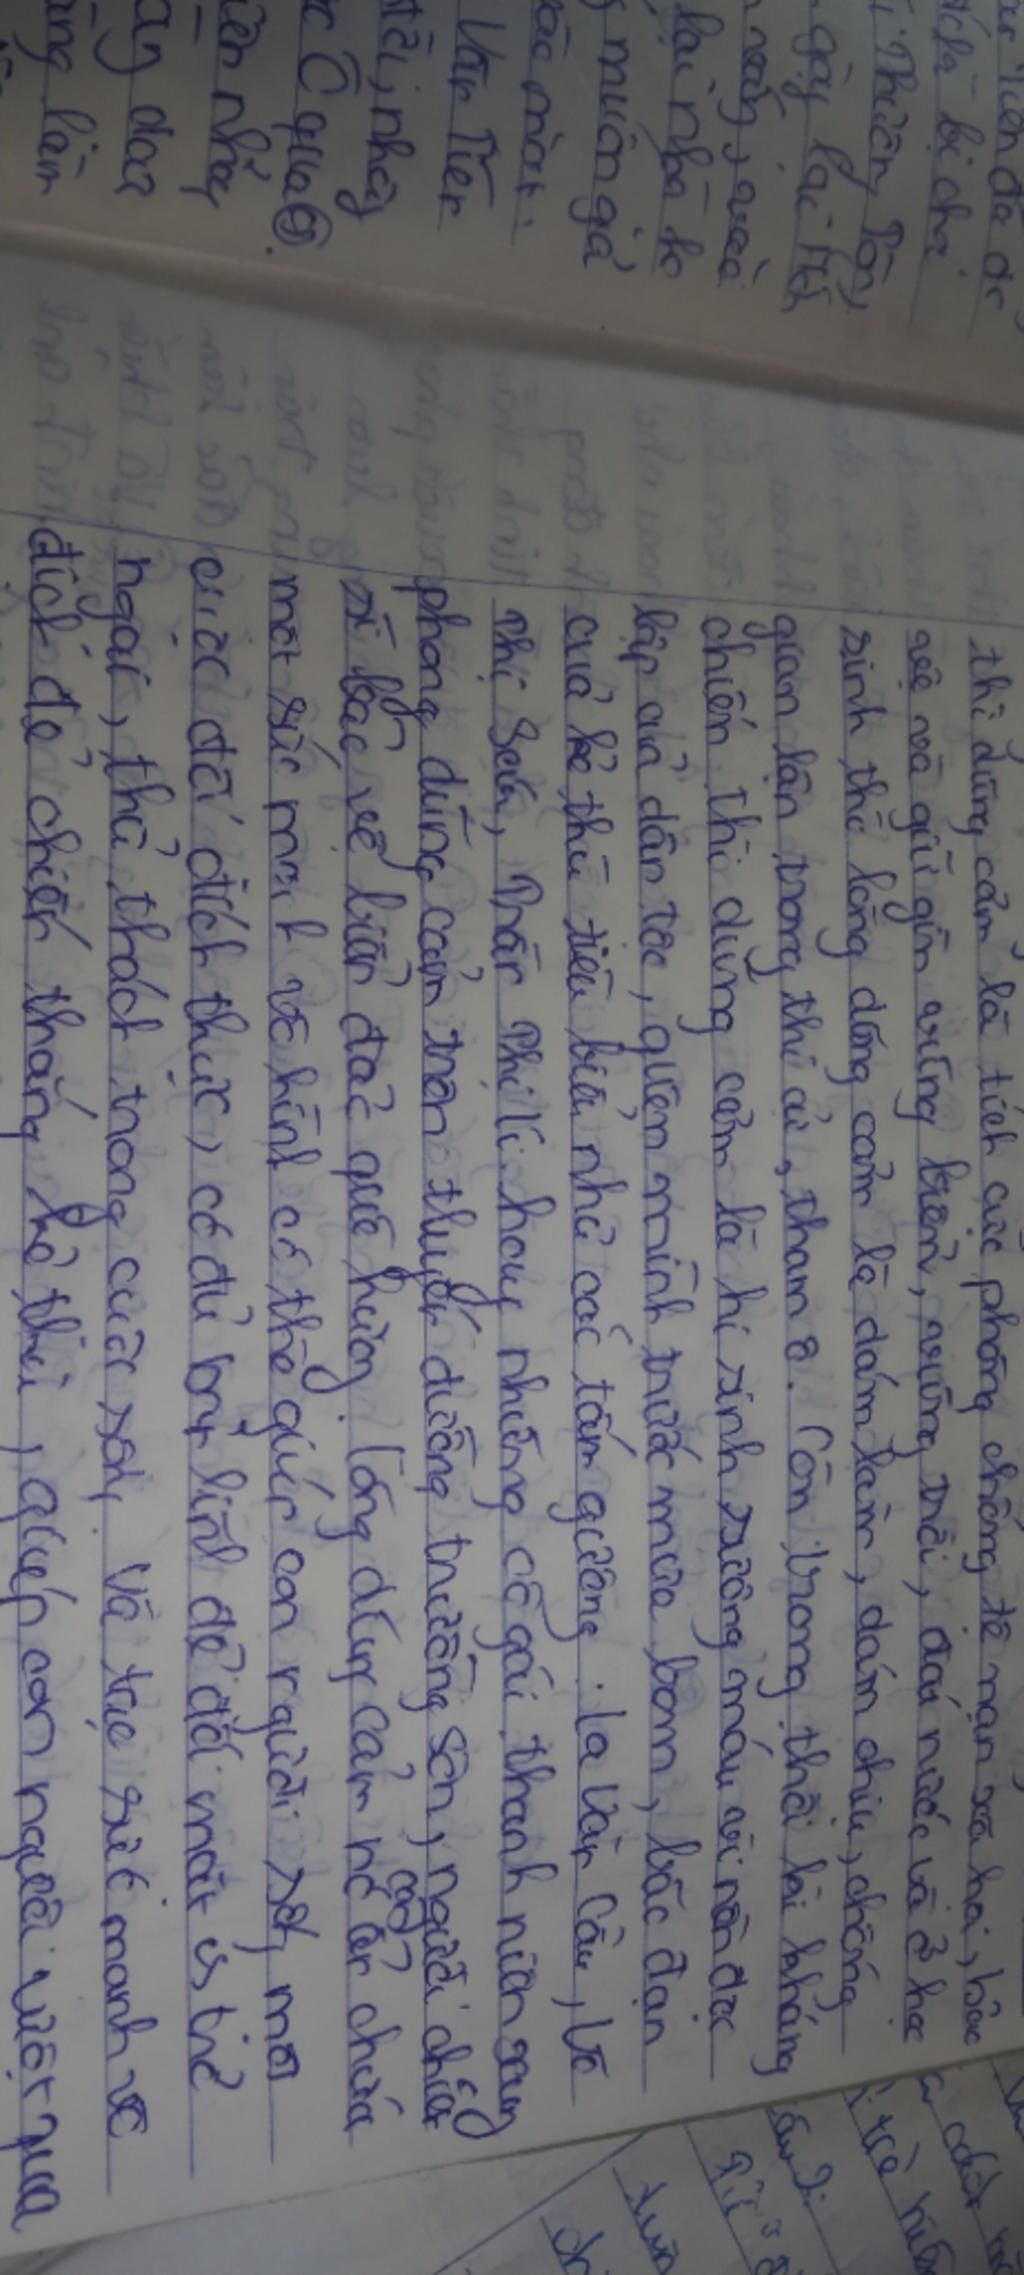 Tiên đã
bị chơi
Thiên, Tôn,
gây lại
vào
lại nhà ho
muôn gả
Vân Tiên
tôi, nhảy
qua
iên nhảy
đoa
làm
thì dũng cảm là tích cực phòng chống tệ nạn xã hội, bảo
vệ và giữ gìn vùng biển, vùng trời, đất nước và ở học
sinh thì lòng dũng cảm là dám làm, dám chịu, chống
gian lận trong thi cử, tham ô. Còn trong thời kì kháng
chiến thì dũng cảm là hi sinh xương máu vì nền độc
lập của dân tộc, quên mình trước mưa bom, bão đạn
của kẻ thù tiêu biểu như các tấm gương: La Văn Cầu, Võ
Thị Sáu, Trần Thị Lí hay những cô gái thanh niên xung
phong dũng cảm trên tuyến đường trường sơn, người chiến
sĩ bảo vệ biển đảo quê hương. Lòng dũng cảm nó còn ẩn chứa
một sức mạnh vô hình có thể giúp con người sống một
cuộc đời đích thực, có đủ bản lĩnh để đối mặt với trở
ngại, thử thách trong cuộc sống. Và tạo sức mạnh vô
địch để chiến thắng kẻ thù, giúp con người vượt qua